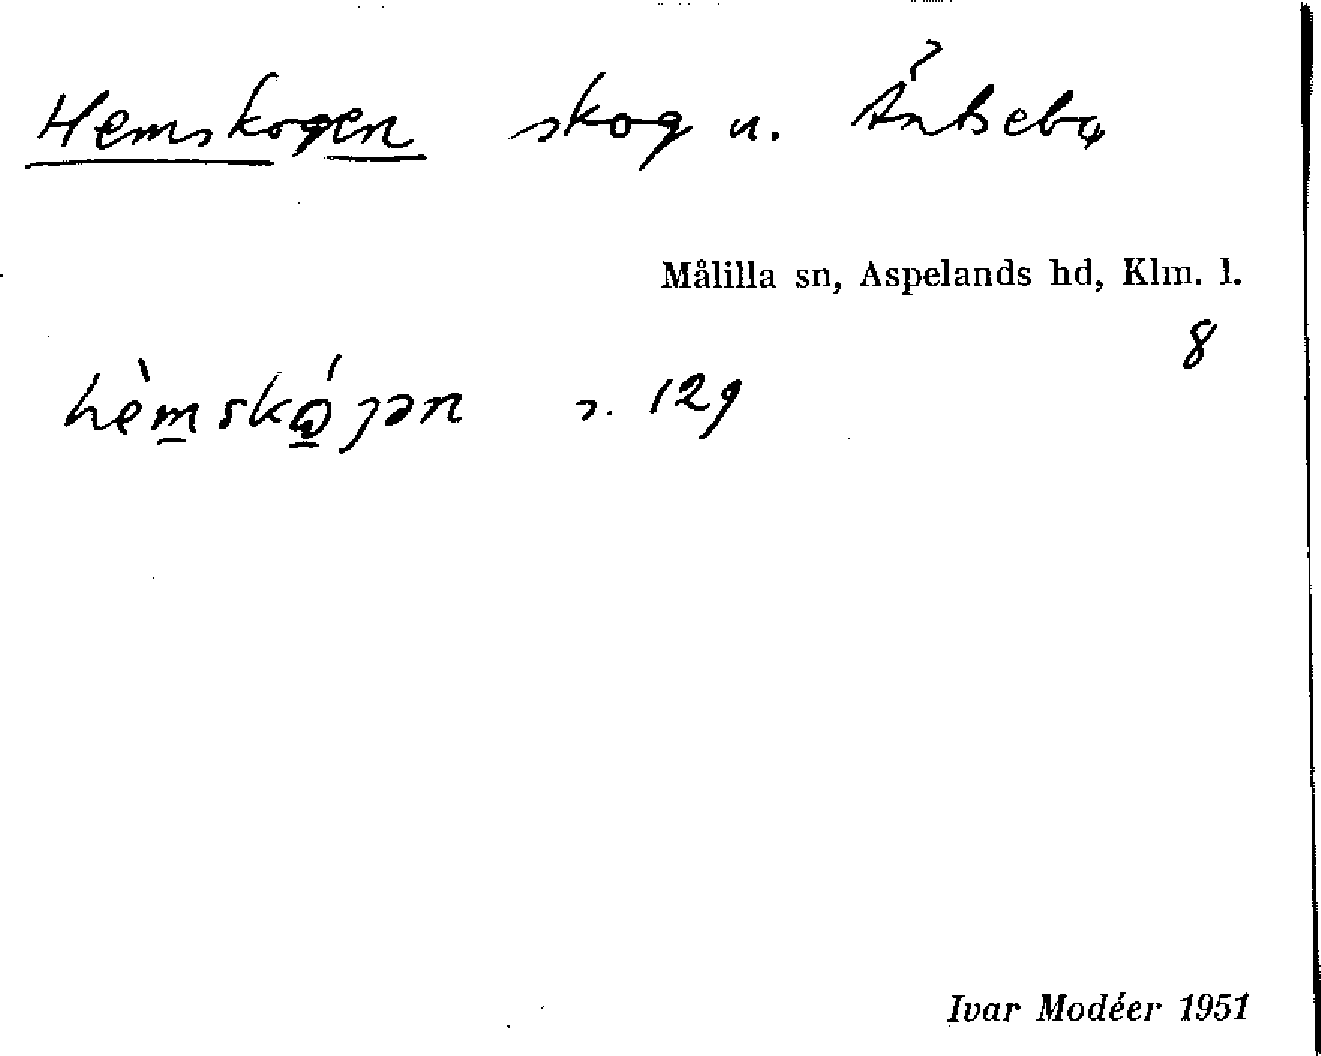 Hemskogen skog u. Äntsebo
Målilla sn, Aspelands hd, Klm. l.
8
hèm̲skó̲gən s. 129
Ivar Modéer 1951